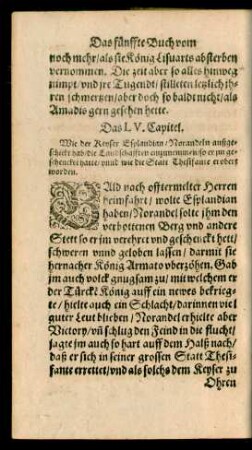 Das fünffte Buch vom
noch mehr/als sie König Lisuarts absterben
vernommen. Die zeit aber so alles hinweg
nimpt/vnd jre Tugendt/stilleten letzlich jh-
ren schmertzen/aber doch so baldt nicht/als
Amadis gern gesehen hette.
Das L V. Capitel.
Wie der Keyser Esplandian/Norandeln außge-
schickt hab/die Landtschafften einzunemmen/so er jm ge-
schencket hatte/vnnd wie die Statt Thesifante erobert
worden.
BAld nach offtermelter Herren
heimfahrt/wolte Esplandian
haben/Norandel solte jhm den
verbottenen Berg vnd andere
Stett so er jm verehret vnd geschenckt hett/
schweren vnnd geloben lassen/darmit sie
hernacher König Armato vberzöhen. Gab
jm auch volck gnugsam zu/mit welchem er
der Türckē König auff ein newes bekrieg-
te/hielte auch ein Schlacht/darinnen viel
guter Leut blieben/Norandel erhielte aber
Victory/vñ schlug den Feind in die flucht/
jagte jm auch so hart auff dem Halß nach/
daß er sich in seiner grossen Statt Thesi-
fante errettet/vnd als solchs dem Keyser zu
Ohren